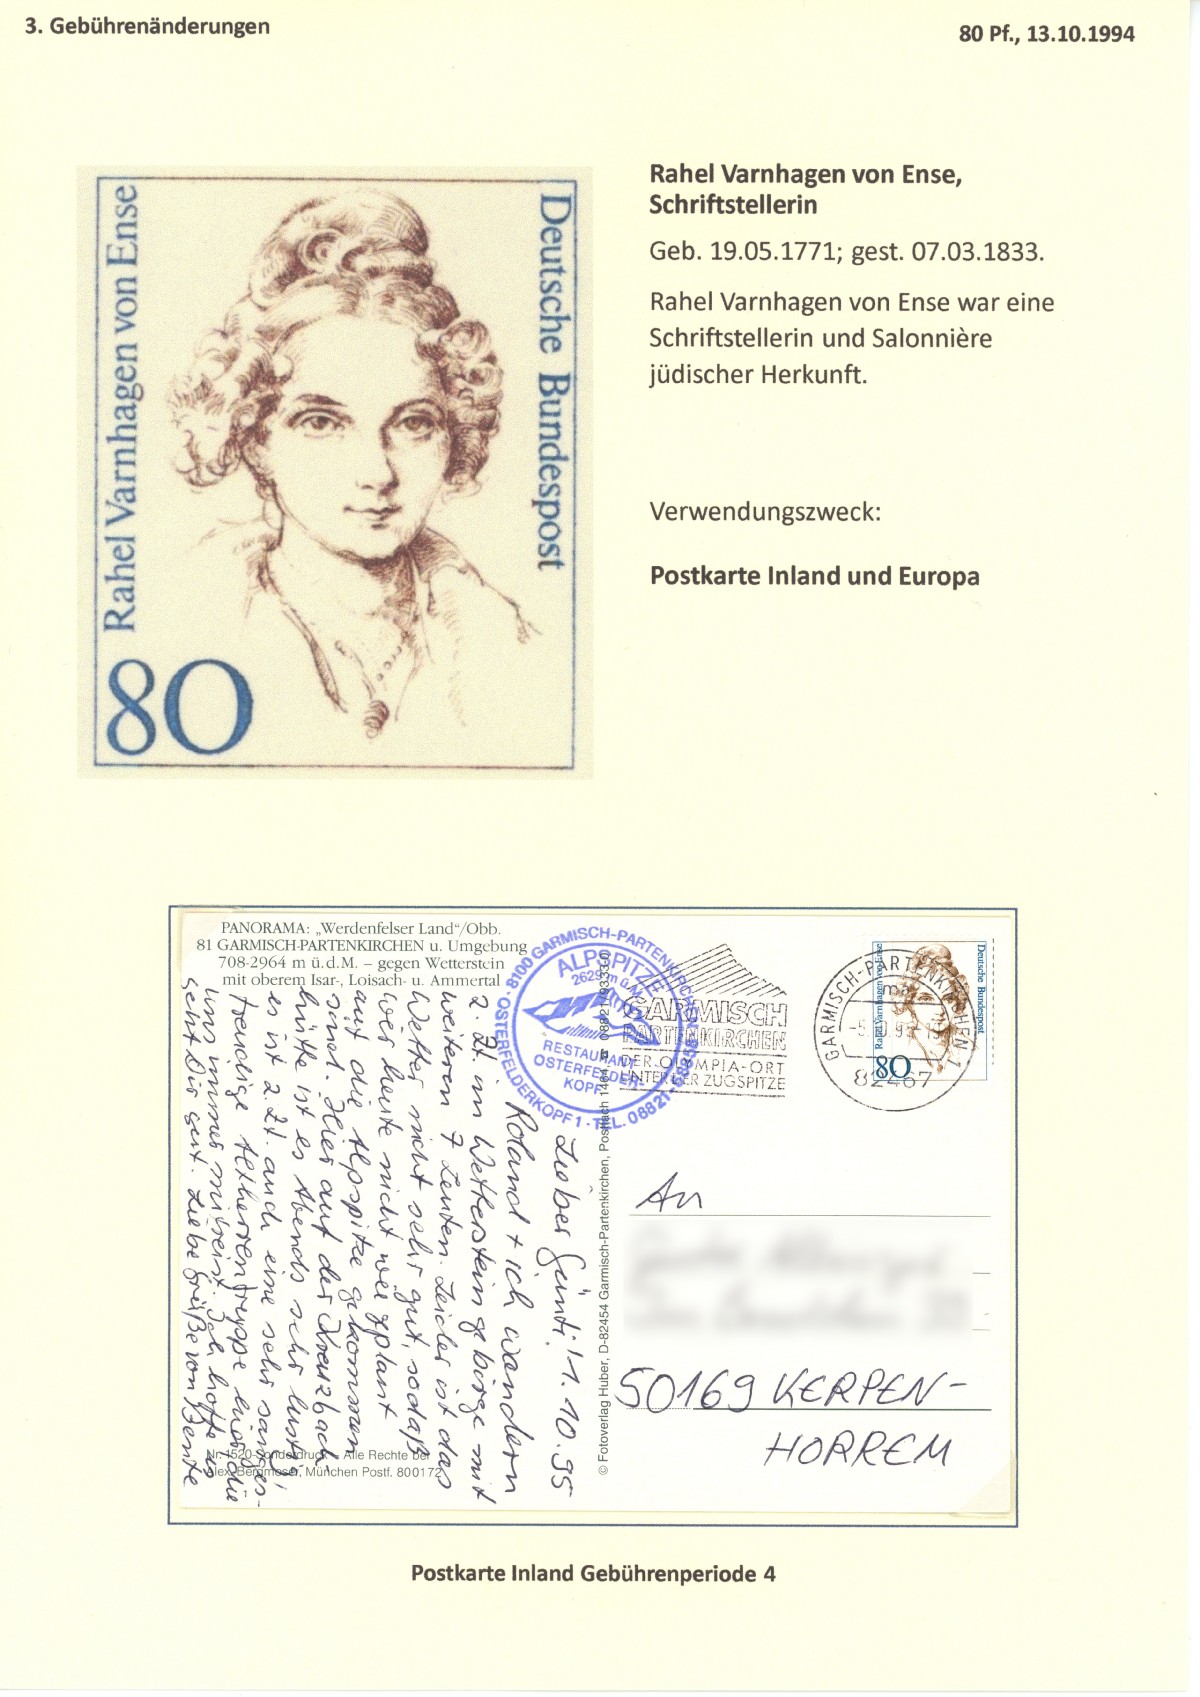 3. Gebührenänderungen
80 Pf., 13.10.1994
Rahel Varnhagen von Ense
Deutsche Bundespost
80
Rahel Varnhagen von Ense,
Schriftstellerin
Geb. 19.05.1771; gest. 07.03.1833.
Rahel Varnhagen von Ense war eine
Schriftstellerin und Salonnière
jüdischer Herkunft.
Verwendungszweck:
Postkarte Inland und Europa
PANORAMA: „Werdenfelser Land“/Obb.
81 GARMISCH-PARTENKIRCHEN u. Umgebung
708-2964 m ü.d.M. – gegen Wetterstein
mit oberem Isar-, Loisach- u. Ammertal
OSTERFELDERKOPF 1 · TEL. 08821-58858
8100 GARMISCH-PARTENKIRCHEN
ALPSPITZE
2629 m ü. M.
RESTAURANT
OSTERFELDER-
KOPF
GARMISCH
PARTENKIRCHEN
DER OLYMPIA-ORT
UNTER DER ZUGSPITZE
GARMISCH-PARTENKIRCHEN
82467
Rahel Varnhagen von Ense
Deutsche Bundespost
80
Lieber Günti! 1.10.95
Roland + ich wandern
z. Zt. im Wettersteingebirge mit
weiteren 7 Leuten. Leider ist das
Wetter nicht sehr gut, sodaß
wir heute nicht wie geplant
auf die Alpspitze gekommen
sind. Hier auf der Kreuzbach
hütte ist es Abends sehr lustig,
es ist z. Zt. auch eine sehr sanges-
freudige Altherrentruppe hier die
uns immer mitreist. Ich hoffe es
geht Dir gut. Liebe Grüße von Bente
Nr. 1520-Sonderdruck – Alle Rechte bei
Alex Bergmoser, München Postf. 800172
© Fotoverlag Huber, D-82454 Garmisch-Partenkirchen, Postfach 1404
An
50169 KERPEN-
HORREM
Postkarte Inland Gebührenperiode 4